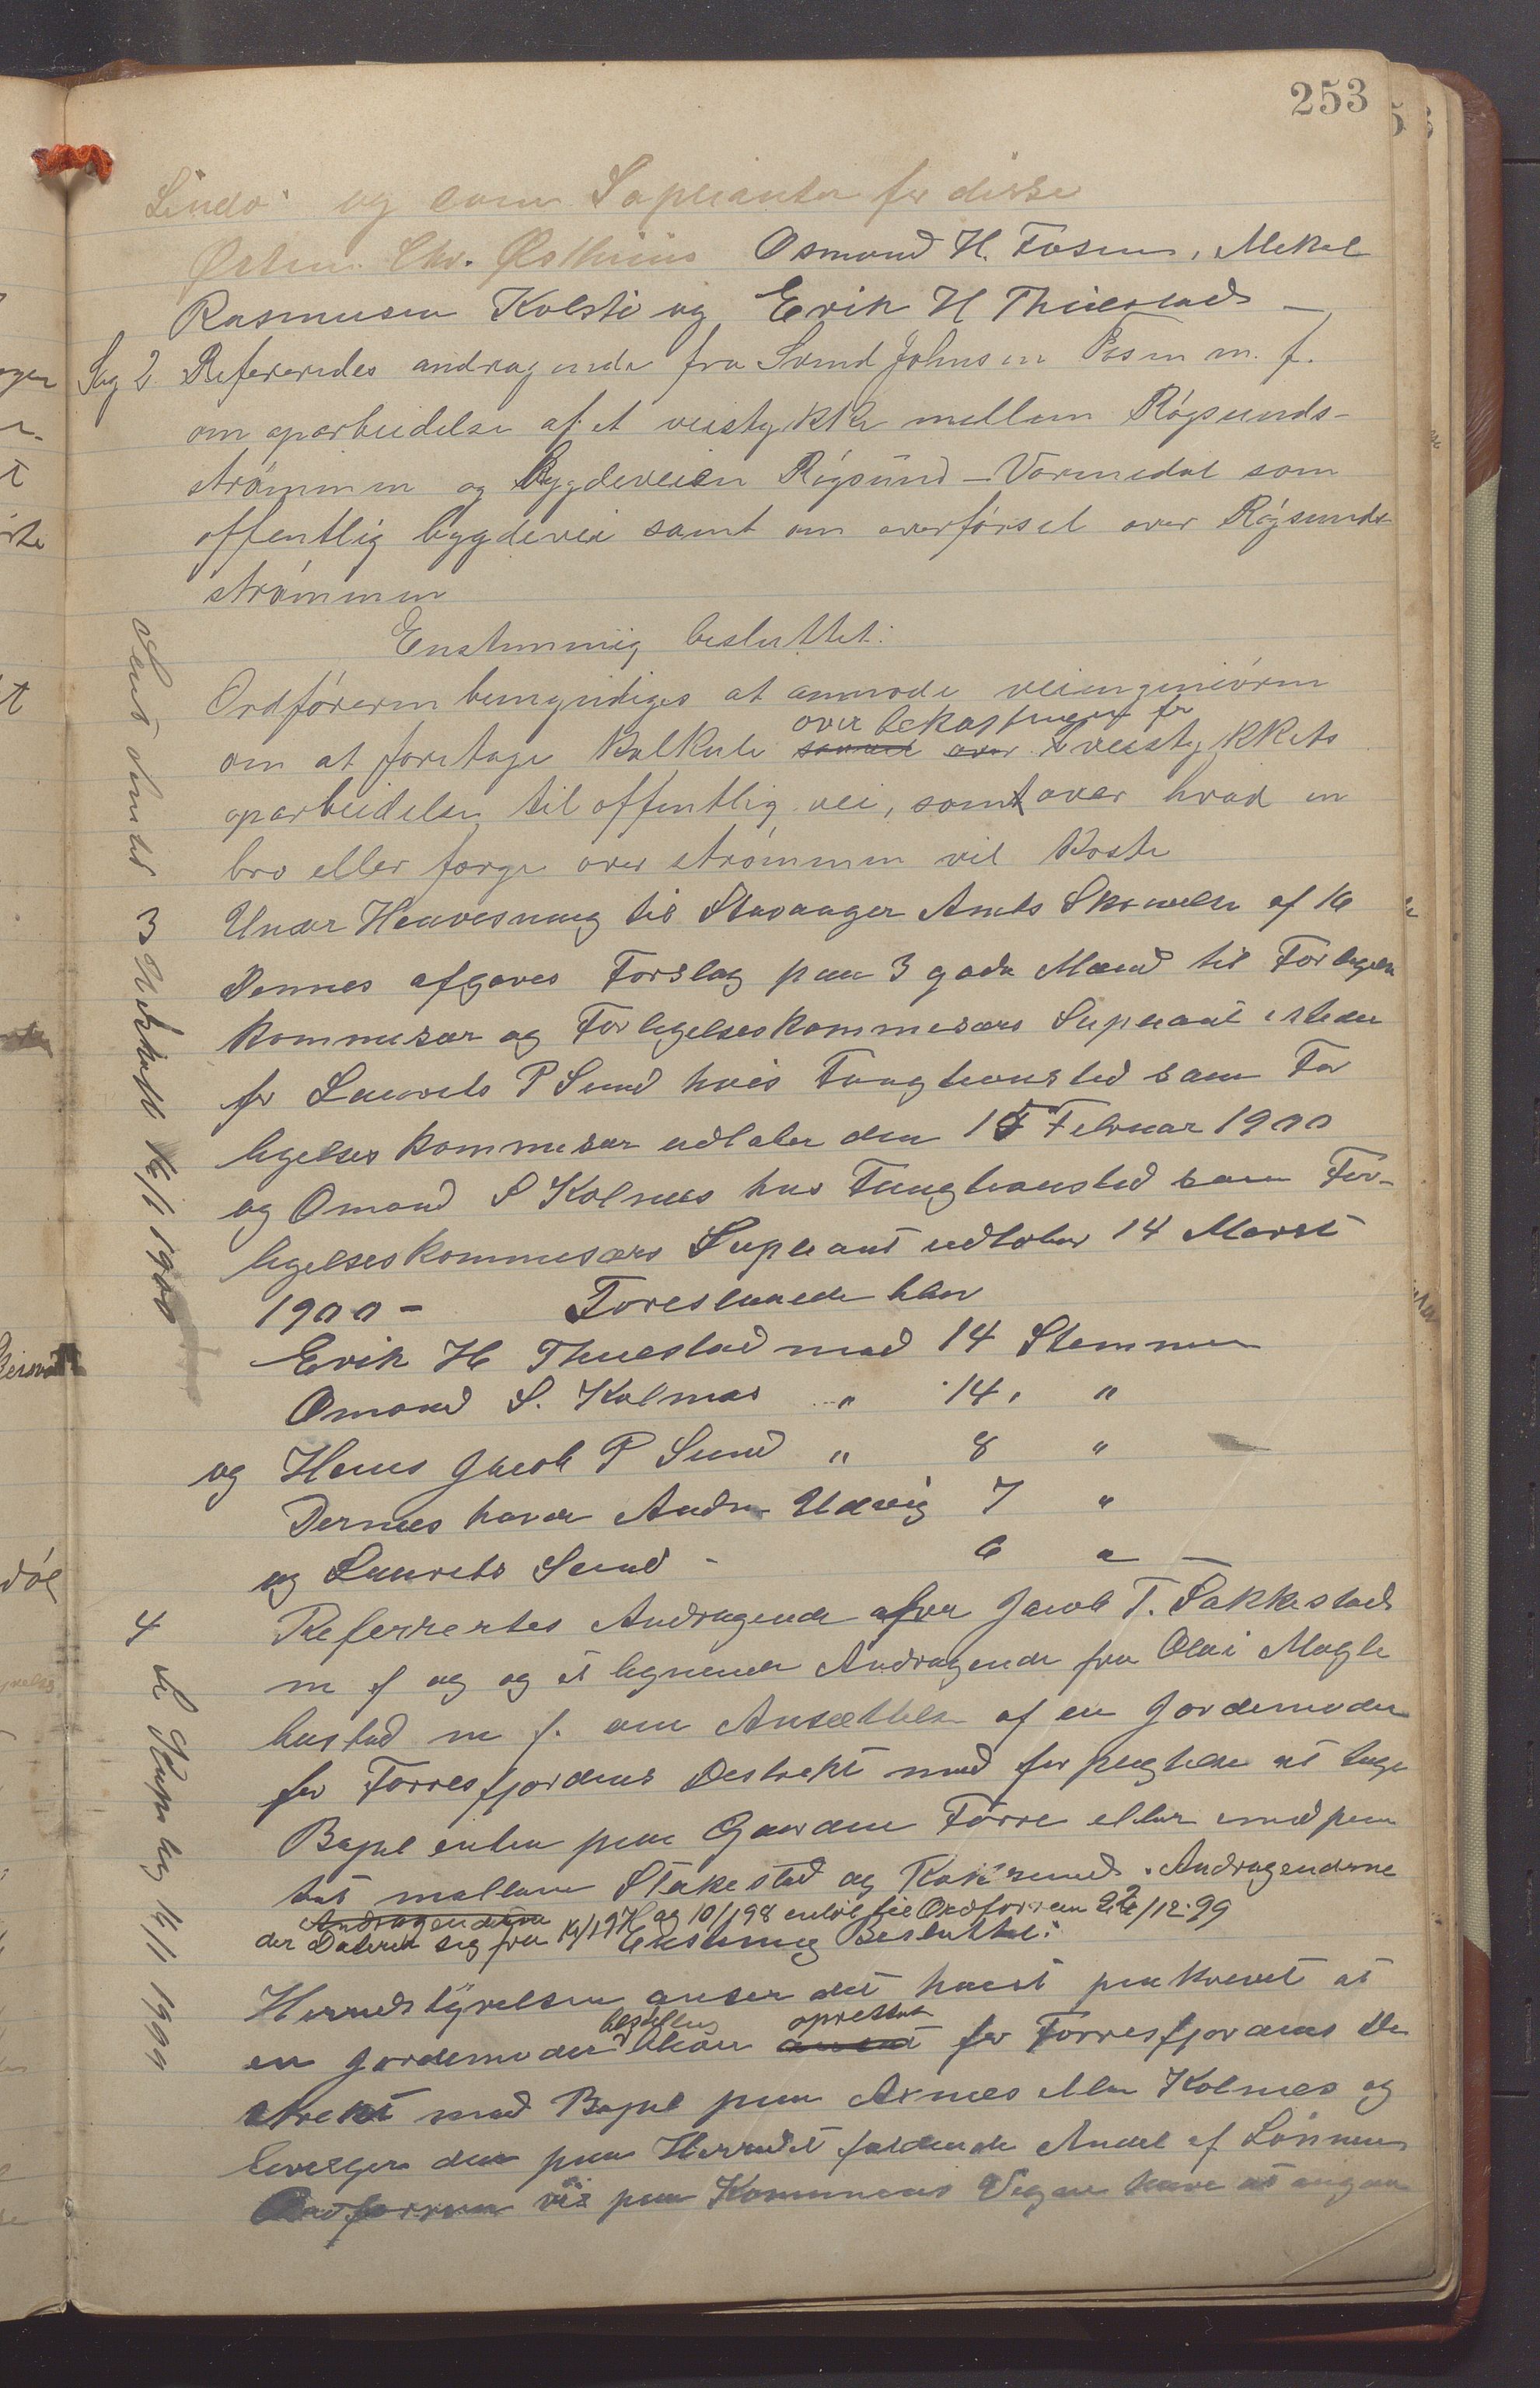 253
Lindø og som Suplianter for disse
Østen Chr. Østhuus Osmond H. Fosen, Mekal
Rasmusen Kolstø og Erik H Thuestad —
Sag 2. Refereredes andragende fra Svend Johnsen Fosen m. f.
om oparbeidelse af et veistykke mellem Røgsunds-
strømmen og Bygdeveien Røgsund - Vormedal som
offentlig bygdevei samt om overførsel over Røgsunds-
strømmen
Enstemmig besluttet:
Ordføreren bemyndiges at anmode veiingeniøren
over bekostningen for
om at foretage kalkule veistykkets
oparbeidelse til offentlig vei, samt over hvad en
bro eller færge over strømmen vil koste
3
Under Henvisning til Stavanger Amts Skrivelse af 16
Dennes afgaves Forslag paa 3 gode Mænd til Forligelses
kommisær og Forligelseskommisærs Supleant isteden
for Laurits P Sund hvis Fungtionstid som For
ligelseskommisær udløber den 15 Februar 1900
og Omond S Kolnes hvis Fungtionstid som For-
ligelseskommisærs Supleant udløber 14 Marst
1900 - Foreslaaede blev
Erik H Thuestad med 14 Stemmer
Omond S. Kolnæs " 14 "
og Hans Jacob P Sund " 8 "
Dernæs havde Andr. Udvig 7 "
og Laurits Sund - 6 "
4
Refererertes Andragende fra Jacob T. Stakkestad
m f og og et lignende Andragende fra Olai Mogle
bustad m f. om Ansættelse af en Jordemoder
for Førresfjordens Destrikt med forpligtelse at tage
Bopæl enten paa Gaarden Førre eller midpun
tet mellem Stakestad og Kaksrud. Andragenderne
Andragenderne
der Daterer sig fra og 10/1 98 indløb til Ordføreren 22/12.99
Enstemig Besluttet:
Herredstyrelsen anser det høist paakrevet at
bestilling oprettet
en Jordemoder bliver for Førresfjordens De
strekt med Bopæl paa Aknes eller Kolnes og
bevilger den paa Herredet faldende Andel af Lønnen
Ordføreren vil paa Komunens Vegne have at
Udskrift 16/1 1900
16/1 1900